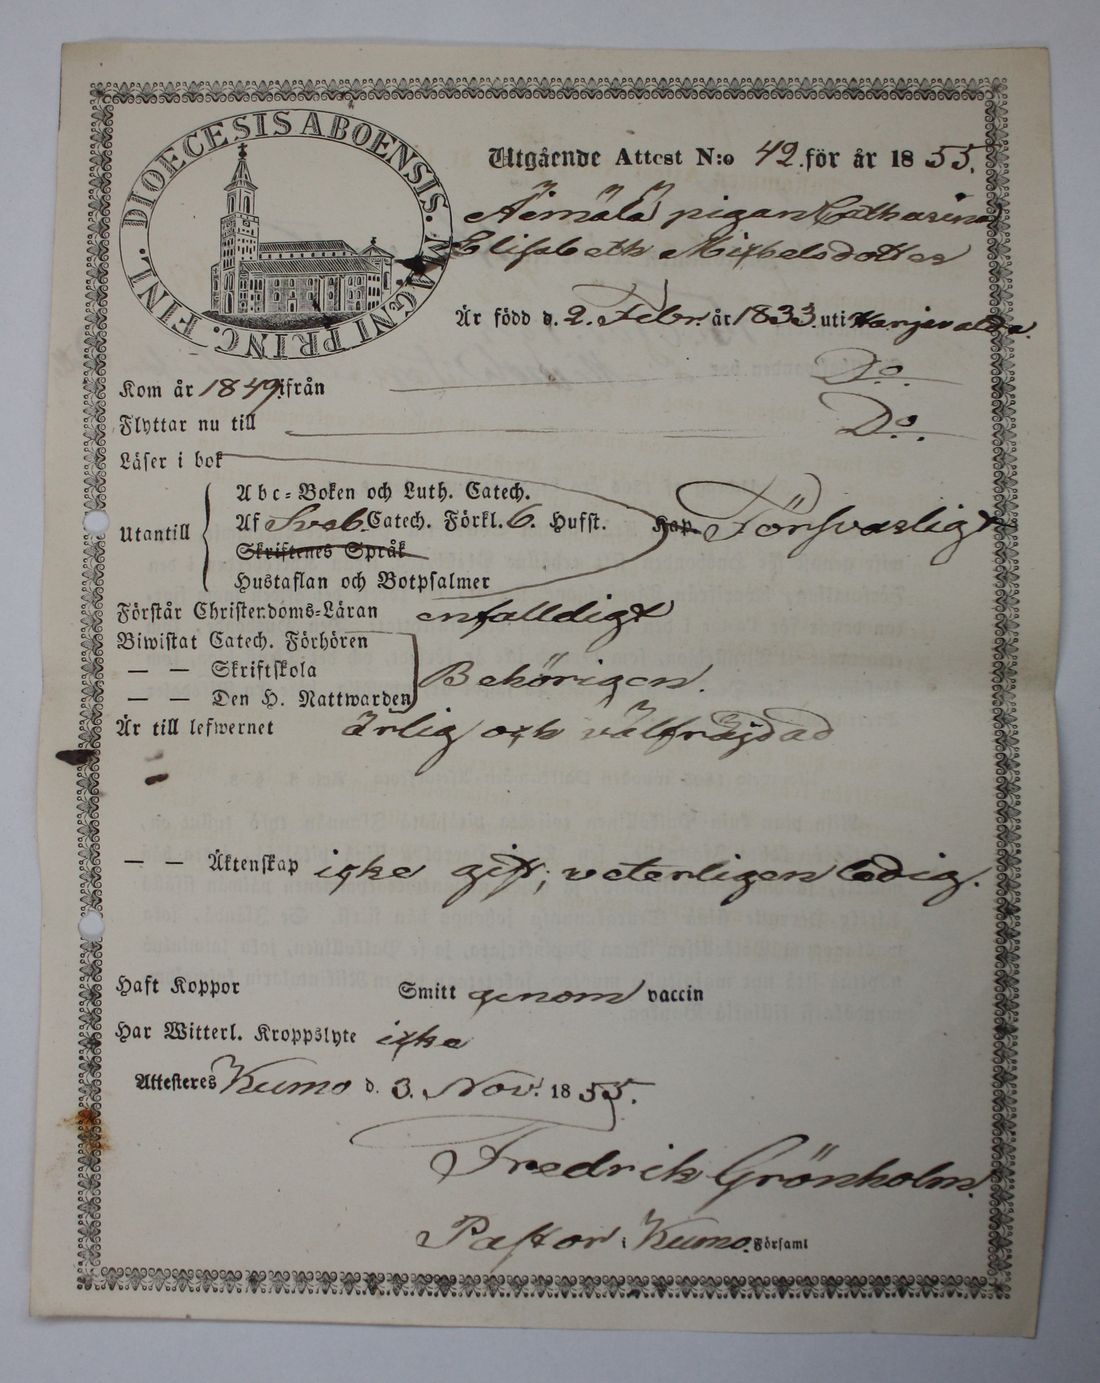 DIOECESIS ABOENSIS. MAGNI PRINC. FINL.
Utgående Attest N:o 42. för år 1855.
Äimälä pigan Catharina
Elisabeth Michelsdotter
Är född d. 2. Febr. år 1833. uti Harjavalda.
Kom år 1849. ifrån Do.
Flyttar nu till Do.
Läser i bok
Utantill
Abc-Boken och Luth. Catech.
Af Sveb. Catech. Förkl. 6. Hufst.
Skriftenes Språk
Hustaflan och Botpsalmer
Har Försvarligt
Förstår Christendoms-Läran enfalldigt
Biwistat Catech. Förhören
— — Skriftskola
— — Den H. Nattwarden
Behörigen.
Är till lefwernet ärlig och välfräjdad
— — Äktenskap icke gift; veterligen ledig.
Haft Koppor Smitt genom vaccin
Har Witterl. Kroppslyte icke
Attesteres Kumo d. 3. Nov. 1855.
Fredrik Grönholm.
Pastor i Kumo. Församl